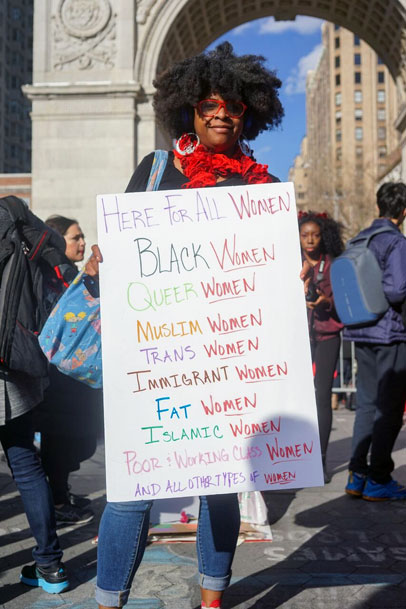 HERE FOR ALL WOMEN
BLACK WOMEN
QUEER WOMEN
MUSLIM WOMEN
TRANS WOMEN
IMMIGRANT WOMEN
FAT WOMEN
ISLAMIC WOMEN
POOR & WORKING CLASS WOMEN
AND ALL OTHER TYPES OF WOMEN